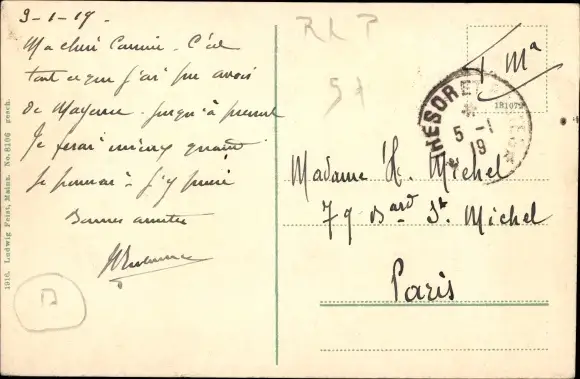 3-1-19.
Ma chère Camie. C'est
tout ce que j'ai pu avoir
de Mayence jusqu'à présent
Je ferai mieux quand
je pourrai - j'y pense
Bonnes amitiés
R L P
57
F Ma
181072
TRESOR ET POSTES
5 -1
19
Madame H. Michel
79 Bard St. Michel
Paris
1916. Ludwig Feist, Mainz. No. 8106 gesch.